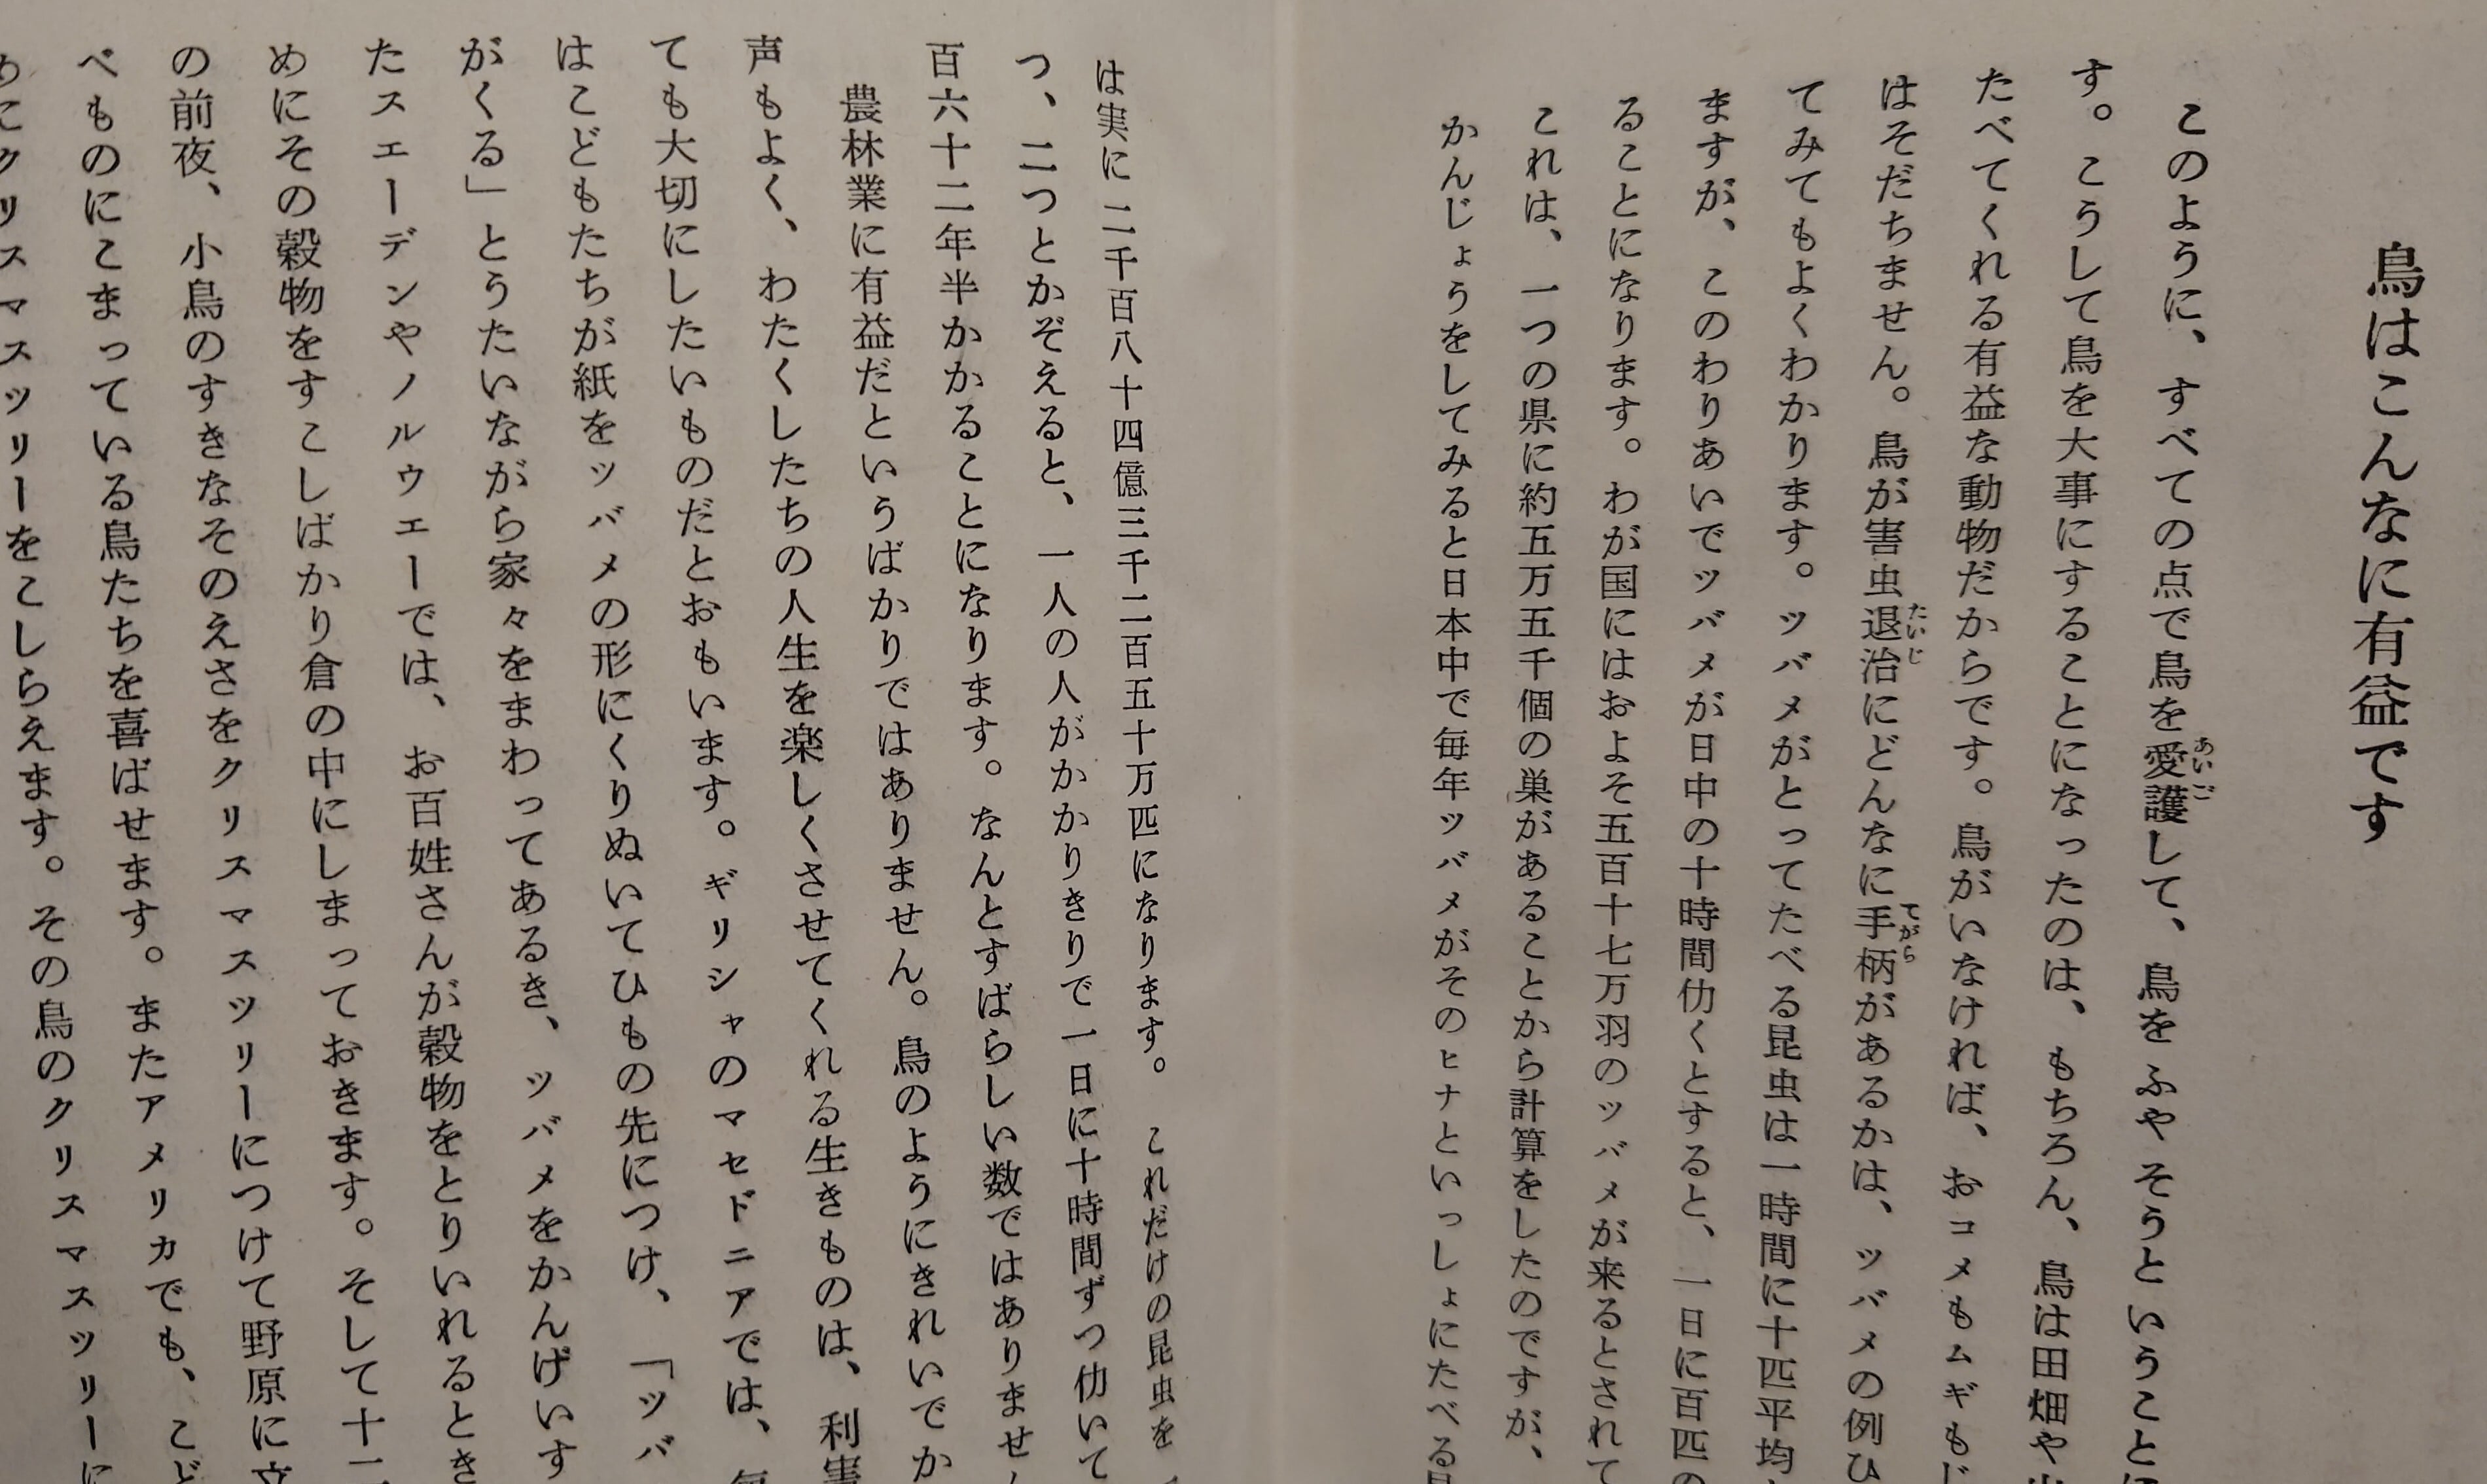 鳥はこんなに有益です
このように、すべての点で鳥を愛護して、鳥をふやそうということに
す。こうして鳥を大事にすることになったのは、もちろん、鳥は田畑や
たべてくれる有益な動物だからです。鳥がいなければ、おコメもムギもじ
はそだちません。鳥が害虫退治にどんなに手柄があるかは、ツバメの例ひ
てみてもよくわかります。ツバメがとってたべる昆虫は一時間に十匹平均
ますが、このわりあいでツバメが日中の十時間仂くとすると、一日に百匹の
ることになります。わが国にはおよそ五百十七万羽のツバメが来るとされて
これは、一つの県に約五万五千個の巣があることから計算をしたのですが、
かんじょうをしてみると日本中で毎年ツバメがそのヒナといっしょにたべる
は実に二千百八十四億三千二百五十万匹になります。これだけの昆虫を
つ、二つとかぞえると、一人の人がかかりきりで一日に十時間ずつ仂いて
百六十二年半かかることになります。なんとすばらしい数ではありませ
農林業に有益だというばかりではありません。鳥のようにきれいでか
声もよく、わたくしたちの人生を楽しくさせてくれる生きものは、利害
ても大切にしたいものだとおもいます。ギリシャのマセドニアでは、毎
はこどもたちが紙をツバメの形にくりぬいてひもの先につけ、「ツバ
がくる」とうたいながら家々をまわってあるき、ツバメをかんげいす
たスエーデンやノルウエーでは、お百姓さんが穀物をとりいれるとき
めにその穀物をすこしばかり倉の中にしまっておきます。そして十二
の前夜、小鳥のすきなそのえさをクリスマスツリーにつけて野原に立
べものにこまっている鳥たちを喜ばせます。またアメリカでも、こど
めにクリスマスツリーをこしらえます。その鳥のクリスマスツリーに